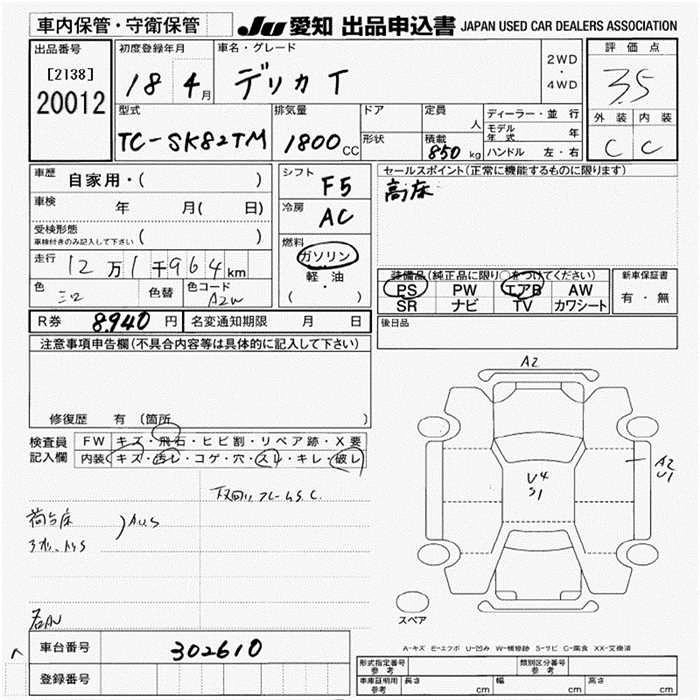 車内保管・守衛保管 JU 愛知 出品申込書 JAPAN USED CAR DEALERS ASSOCIATION
出品番号 初度登録年月 車名・グレード 2WD・4WD 評価点
[2138] 18 4月 デリカ T 3.5
20012
型式 排気量 ドア 定員 人 ディーラー・並行 外装 内装
TC-SK82TM 1800cc 形状 積載 850kg モデル年式 年 C C
ハンドル 左・右
車歴 自家用・( ) シフト F5 セールスポイント(正常に機能するものに限ります)
車検 年 月( 日) 冷房 AC 高床
受検形態 ( )
車検付きのみ記入して下さい
燃料
走行 12万1千964km ガソリン 装備品(純正品に限り○をつけてください) 新車保証書
色 色替 色コード 軽・油 PS PW エアB AW 有・無
A2W ( ) SR ナビ TV カワシート
R券 8,940円 名変通知期限 月 日 後日品
注意事項申告欄(不具合内容等は具体的に記入して下さい)
修復歴 有(箇所 )
検査員 FW キズ・飛石・ヒビ割・リペア跡・X要
記入欄 内装 キズ・汚レ・コゲ・穴・スレ・キレ・破レ
A2
A2
U1
U4
S1
下回リフレームS.C.
荷台床 )AUS
スペア
A-キズ E-エクボ U-凹み W-補修跡 S-サビ C-腐食 XX-交換済
車台番号 302610
登録番号
形式指定番号 参考 類別区分番号 参考
車庫証明用 参考 長さ cm 幅 cm 高さ cm